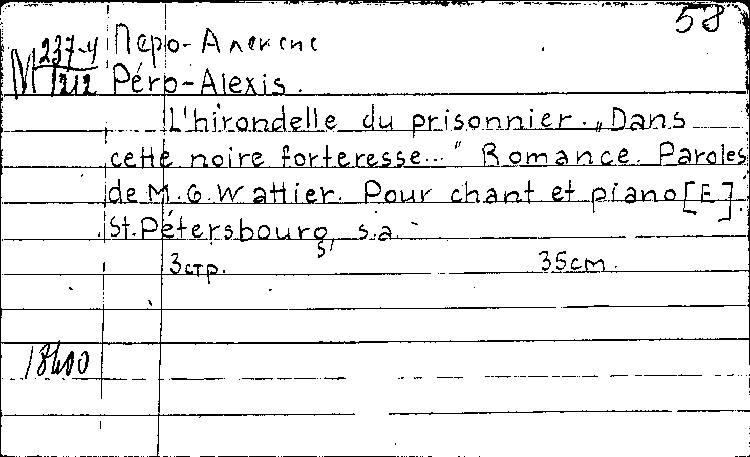 58
М 237-4/1212 Перо-Алексис
Péro-Alexis.
L'hirondelle du prisonnier. „Dans
cette noire forteresse..." Romance. Paroles
de M.G. Wattier. Pour chant et piano [E].
St.Pétersbourg, s.a.
3стр. 35cm.
18400